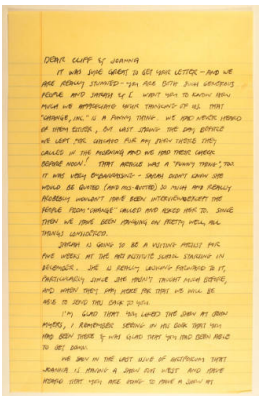 DEAR CLIFF & JOANNA
IT WAS SURE GREAT TO GET YOUR LETTER - AND WE
ARE REALLY STUNNED - YOU ARE BOTH SUCH GENEROUS
PEOPLE AND SARAH & I WANT YOU TO KNOW HOW
MUCH WE APPRECIATE YOUR THINKING OF US. THAT
"CHANGE, INC." IS A FUNNY THING. WE HAD NEVER HEARD
OF THEM EITHER, BUT LAST SPRING THE DAY BEFORE
WE LEFT FOR CHICAGO FOR MY SHOW THERE THEY
CALLED IN THE MORNING AND WE HAD THEIR CHECK
BEFORE NOON! THAT ARTICLE WAS A "FUNNY THING", TOO.
IT WAS VERY EMBARRASSING - SARAH DIDN'T KNOW SHE
WOULD BE QUOTED (AND MIS-QUOTED) SO MUCH AND REALLY
PROBABLY WOULDN'T HAVE BEEN INTERVIEWED EXCEPT THE
PEOPLE FROM "CHANGE" CALLED AND ASKED HER TO. SINCE
THEN WE HAVE BEEN HANGING ON PRETTY WELL, ALL
THINGS CONSIDERED.
SARAH IS GOING TO BE A VISITING ARTIST FOR
FIVE WEEKS AT THE ART INSTITUTE SCHOOL STARTING IN
DECEMBER. SHE IS REALLY LOOKING FORWARD TO IT,
PARTICULARLY SINCE SHE HASN'T TAUGHT MUCH BEFORE,
AND WHEN THEY PAY HER FOR THIS WE WILL BE
ABLE TO SEND THE BACK TO YOU.
I'M GLAD THAT YOU LIKED THE SHOW AT JASON
MYERS, I REMEMBER SEEING IN HIS BOOK THAT YOU
HAD BEEN THERE & WAS GLAD THAT YOU HAD BEEN ABLE
TO GET DOWN.
WE SAW IN THE LAST ISSUE OF ARTFORUM THAT
JOANNA IS HAVING A SHOW OUT WEST AND HAVE
HEARD THAT YOU ARE GOING TO HAVE A SHOW AT